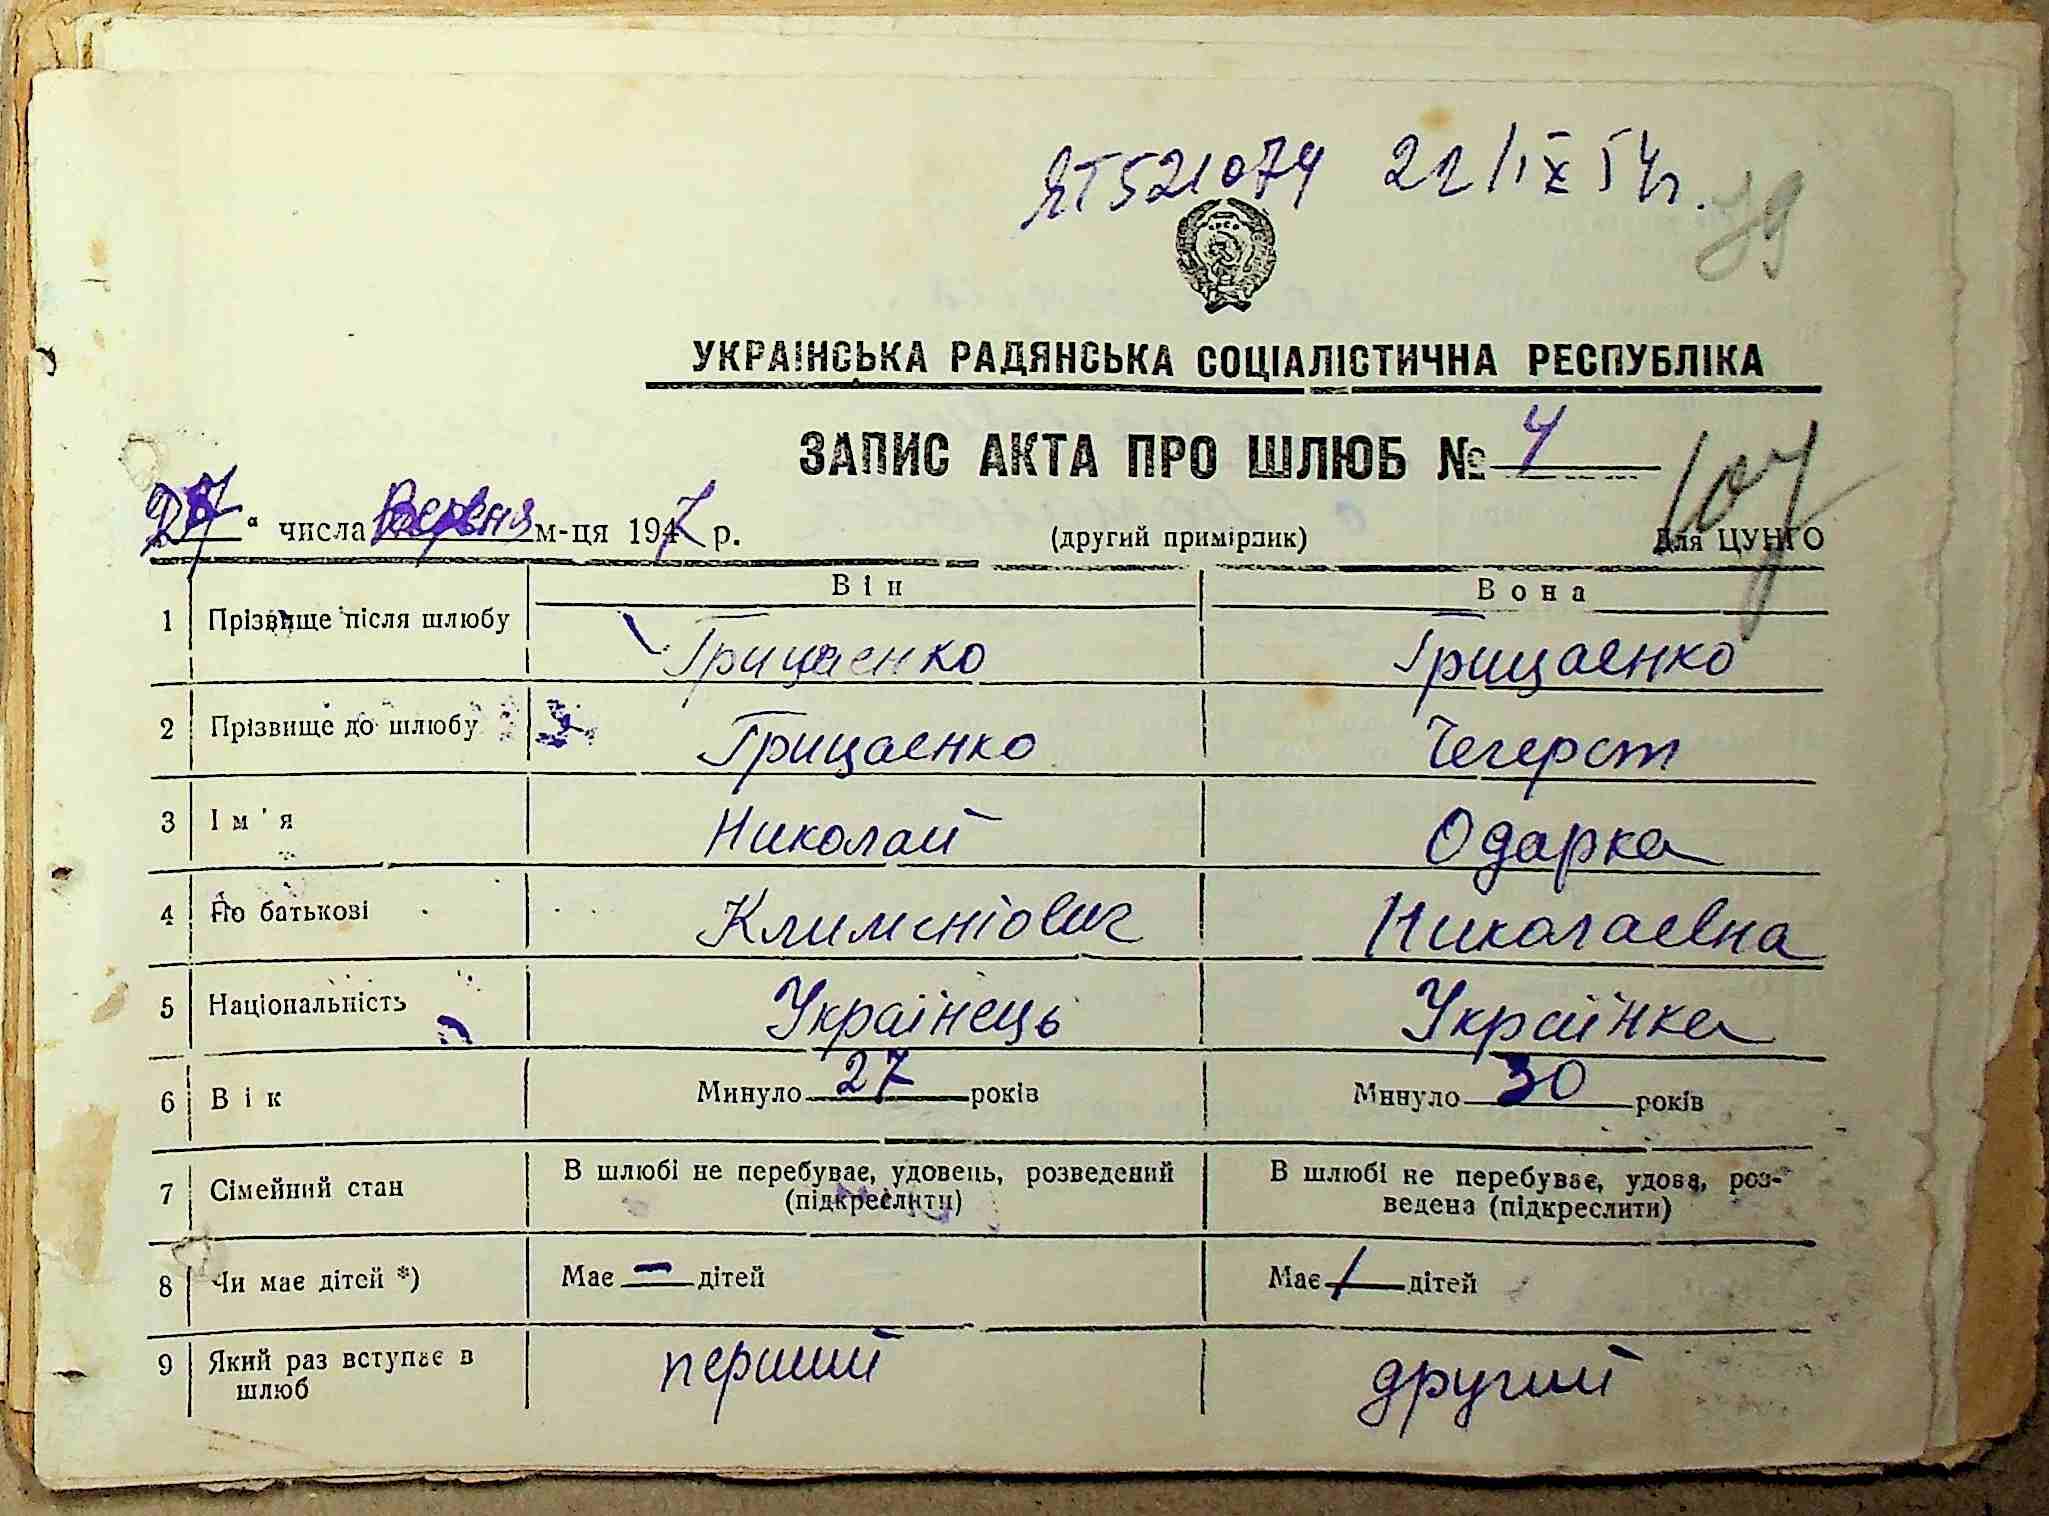 ЯТ521074 22/IX 54 р.
79
УКРАЇНСЬКА РАДЯНСЬКА СОЦІАЛІСТИЧНА РЕСПУБЛІКА
ЗАПИС АКТА ПРО ШЛЮБ № 4
107
27 " числа Червня м-ця 1947 р. (другий примірник) Для ЦУНГО
Він Вона
1 Прізвище після шлюбу Грицаенко Грицаенко
2 Прізвище до шлюбу Грицаенко
3 Ім'я Николай Одарка
4 По батькові Климентіович Николаевна
5 Національність Українець Українка
6 Вік Минуло 27 років Минуло 30 років
7 Сімейний стан В шлюбі не перебуває, удовець, розведений В шлюбі не перебуває, удова, роз-
(підкреслити) ведена (підкреслити)
8 Чи має дітей *) Має — дітей Має 1 дітей
9 Який раз вступає в перший другий
шлюб